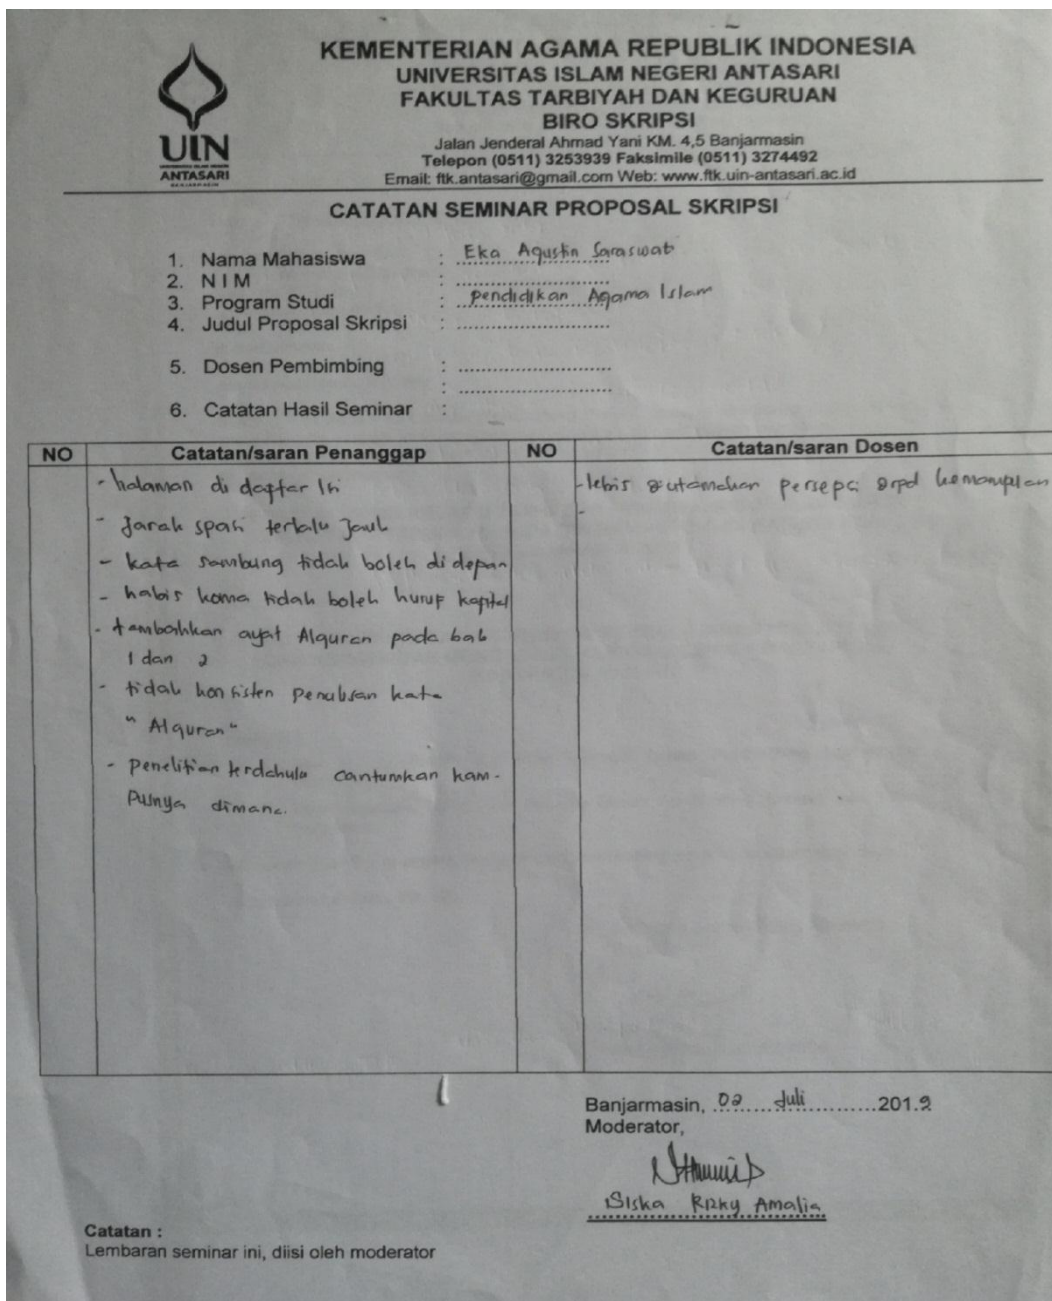 KEMENTERIAN AGAMA REPUBLIK INDONESIA
UNIVERSITAS ISLAM NEGERI ANTASARI
FAKULTAS TARBIYAH DAN KEGURUAN
BIRO SKRIPSI
Jalan Jenderal Ahmad Yani KM. 4,5 Banjarmasin
Telepon (0511) 3253939 Faksimile (0511) 3274492
Email: ftk.antasari@gmail.com Web: www.ftk.uin-antasari.ac.id
UIN
ANTASARI
BANJARMASIN
CATATAN SEMINAR PROPOSAL SKRIPSI
1. Nama Mahasiswa : Eka Agustin Saraswati
2. N I M : ...........................
3. Program Studi : Pendidikan Agama Islam
4. Judul Proposal Skripsi : ...........................
5. Dosen Pembimbing : ...........................
: ...........................
6. Catatan Hasil Seminar :
NO Catatan/saran Penanggap NO Catatan/saran Dosen
- halaman di daftar Isi
- Jarak spasi terlalu Jauh
- kata sambung tidak boleh di depan
- habis koma tidak boleh huruf kapital
- tambahkan ayat Alquran pada bab
1 dan 2
- tidak konsisten penulisan kata
" Alquran "
- Penelitian terdahulu cantumkan kam-
pusnya dimana.
- persepsi
-
Banjarmasin, 02 Juli 2019
Moderator,
Siska Rizky Amalia
Catatan :
Lembaran seminar ini, diisi oleh moderator